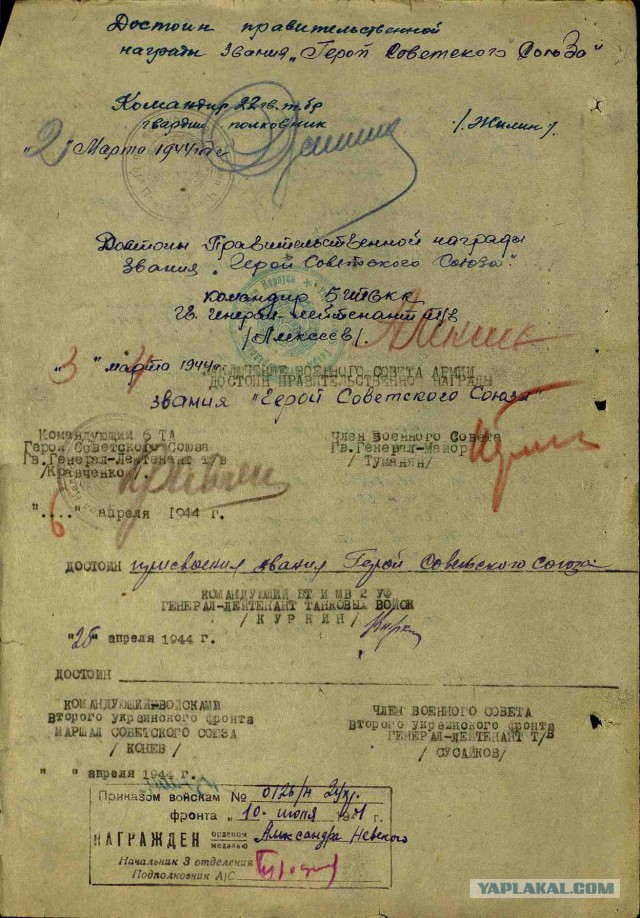 Достоин правительственной
награды звания „Герой Советского Союза"
Командир 22 гв. т. бр
гвардии полковник /. Жилин /.
"2" Марта 1944 года
Достоин Правительственной награды
звания „Герой Советского Союза".
Командир 5 гв. Т С К К
Гв. Генерал-лейтенант т/в
/Алексеев/.
"3" марта 1944 г.
ЗАКЛЮЧЕНИЕ ВОЕННОГО СОВЕТА АРМИИ
ДОСТОИН ПРАВИТЕЛЬСТВЕННОЙ НАГРАДЫ
звания "Герой Советского Союза"
Командующий 6 ТА
Герой Советского Союза
Гв. Генерал-Лейтенант т/в
/Кравченко/.
Член Военного Совета
Гв. Генерал-Майор
/ Туманян/
"6" апреля 1944 г.
ДОСТОИН присвоения звания Герой Советского Союза
КОМАНДУЮЩИЙ БТ И МВ 2 УФ
ГЕНЕРАЛ-ЛЕЙТЕНАНТ ТАНКОВЫХ ВОЙСК
/ КУРКИН /
"26" апреля 1944 г.
ДОСТОИН
КОМАНДУЮЩИЙ ВОЙСКАМИ
Второго украинского фронта
МАРШАЛ СОВЕТСКОГО СОЮЗА
/ КОНЕВ /
ЧЛЕН ВОЕННОГО СОВЕТА
Второго украинского фронта
ГЕНЕРАЛ-ЛЕЙТЕНАНТ Т/В
/ СУСАЙКОВ/
" " апреля 1944 г.
Приказом войскам №
фронта „10" июля
НАГРАЖДЕН орденом медалью Александра Невского
Начальник 3 отделения
Подполковник А/С
YAPLAKAL.COM